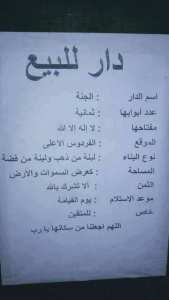 دار للبيع
اسم الدار : الجنة
عدد أبوابها : ثمانية
مفتاحها : لا إله إلا الله
الموقع : الفردوس الأعلى
نوع البناء : لبنة من ذهب ولبنة من فضة
المساحة : كعرض السموات والأرض
الثمن : ألا تشرك بالله
موعد الاستلام : يوم القيامة
خاص : للمتقين
اللهم اجعلنا من سكانها يا رب